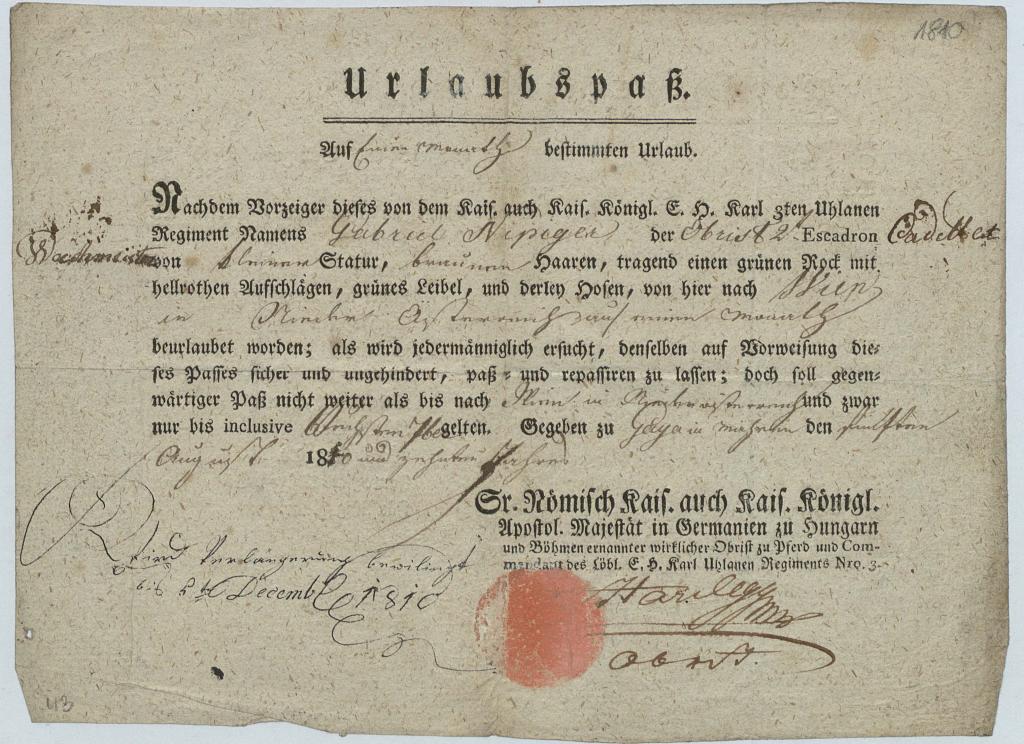 1810
Urlaubspaß.
Auf einen Monath bestimmten Urlaub.
Nachdem Vorzeiger dieses von dem Kais. auch Kais. Königl. E. H. Karl 3ten Uhlanen
Regiment Namens Gabriel der Obrist 2 Escadron
Wachmeister von kleiner Statur, braunen Haaren, tragend einen grünen Rock mit
hellrothen Aufschlägen, grünes Leibel, und derley Hosen, von hier nach Wien
in Nieder Oesterreich auf einen Monath
beurlaubet worden; als wird jedermänniglich ersucht, denselben auf Vorweisung die-
ses Passes sicher und ungehindert, paß- und repassiren zu lassen; doch soll gegen-
wärtiger Paß nicht weiter als bis nach Wien in Niederösterreich und zwar
nur bis inclusive gelten. Gegeben zu Gaya in Mähren den fünften
August 1810 und zehnten Jahres
Sr. Römisch Kais. auch Kais. Königl.
Apostol. Majestät in Germanien zu Hungarn
und Böhmen ernannter wirklicher Obrist zu Pferd und Com-
mandant des Löbl. E. H. Karl Uhlanen Regiments Nro. 3.
Wird Verlängerung bewilligt
bis 5ten Decemb 1810
Hardegg
Obrist.
43